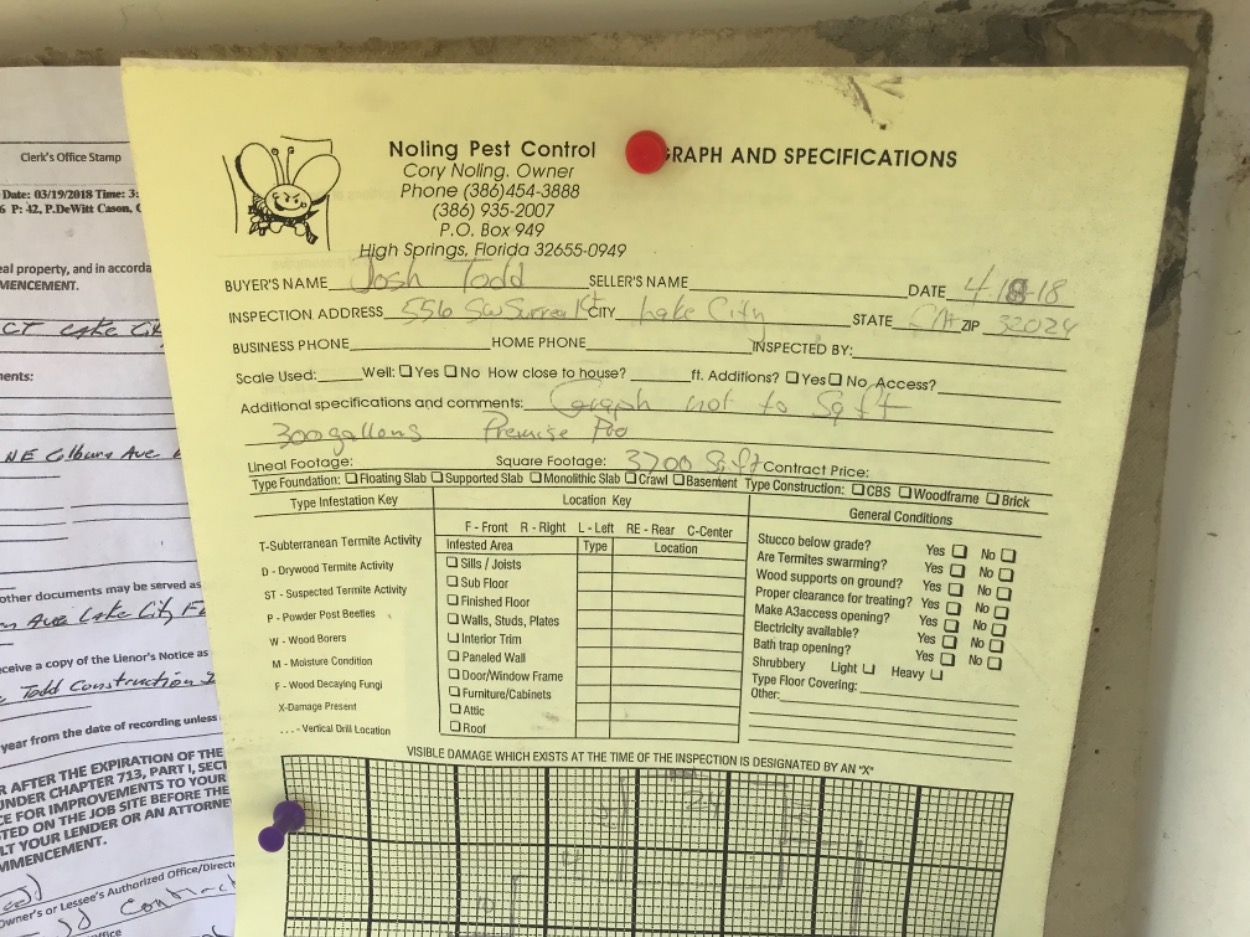 Clerk's Office Stamp
Date: 03/19/2018 Time: 3:
6 P: 42, P.DeWitt Cason, C
eal property, and in accorda
MENCEMENT.
CT Lake Cit
ments:
NE Colburn Ave
other documents may be served as
Ave Lake City F
eceive a copy of the Lienor's Notice as
Todd Construction I
year from the date of recording unless
R AFTER THE EXPIRATION OF THE
UNDER CHAPTER 713, PART I, SECT
CE FOR IMPROVEMENTS TO YOUR
STED ON THE JOB SITE BEFORE THE
LT YOUR LENDER OR AN ATTORNE
MMENCEMENT.
Owner's or Lessee's Authorized Office/Direct
Office
Noling Pest Control
GRAPH AND SPECIFICATIONS
Cory Noling. Owner
Phone (386)454-3888
(386) 935-2007
P.O. Box 949
High Springs, Florida 32655-0949
BUYER'S NAME Josh Todd SELLER'S NAME DATE 4-18-18
INSPECTION ADDRESS 556 SW Surrea Ct CITY Lake City STATE ZIP 32024
BUSINESS PHONE HOME PHONE INSPECTED BY:
Scale Used: Well: Yes No How close to house? ft. Additions? Yes No Access?
Additional specifications and comments: Graph not to Sq ft
300 gallons Premise Pro
Lineal Footage: Square Footage: 3700 Sq ft Contract Price:
Type Foundation: Floating Slab Supported Slab Monolithic Slab Crawl Basement Type Construction: CBS Woodframe Brick
Type Infestation Key
T-Subterranean Termite Activity
D - Drywood Termite Activity
ST - Suspected Termite Activity
P - Powder Post Beetles
W - Wood Borers
M - Moisture Condition
F - Wood Decaying Fungi
X-Damage Present
. . . - Vertical Drill Location
Location Key
F - Front R - Right L - Left RE - Rear C-Center
Infested Area Type Location
Sills / Joists
Sub Floor
Finished Floor
Walls, Studs, Plates
Interior Trim
Paneled Wall
Door/Window Frame
Furniture/Cabinets
Attic
Roof
General Conditions
Stucco below grade? Yes No
Are Termites swarming? Yes No
Wood supports on ground? Yes No
Proper clearance for treating? Yes No
Make A3access opening? Yes No
Electricity available? Yes No
Bath trap opening? Yes No
Shrubbery Light Heavy
Type Floor Covering:
Other:
VISIBLE DAMAGE WHICH EXISTS AT THE TIME OF THE INSPECTION IS DESIGNATED BY AN "X"